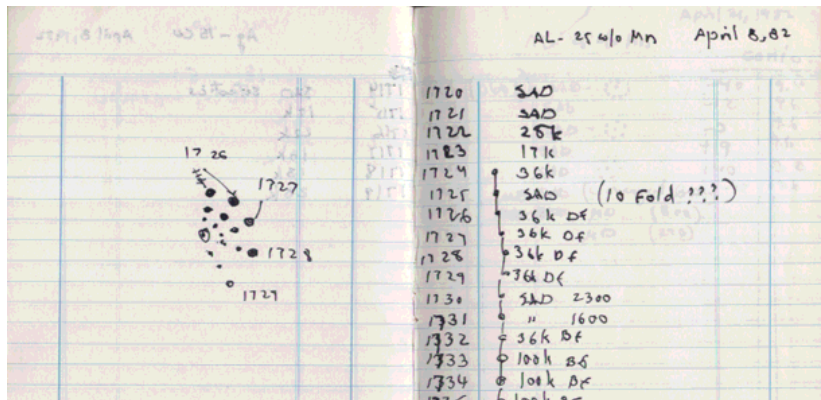 1726
1727
1728
1729
AL- 25 w/o Mn April 8,82
1720 SAD
1721 SAD
1722 25k
1723 17k
1724 36k
1725 SAD (10 Fold ???)
1726 36k Df
1727 36k Df
1728 36k Df
1729 36k Df
1730 SAD 2300
1731 " 1600
1732 36k Bf
1733 100k Bf
1734 100k Bf
100k